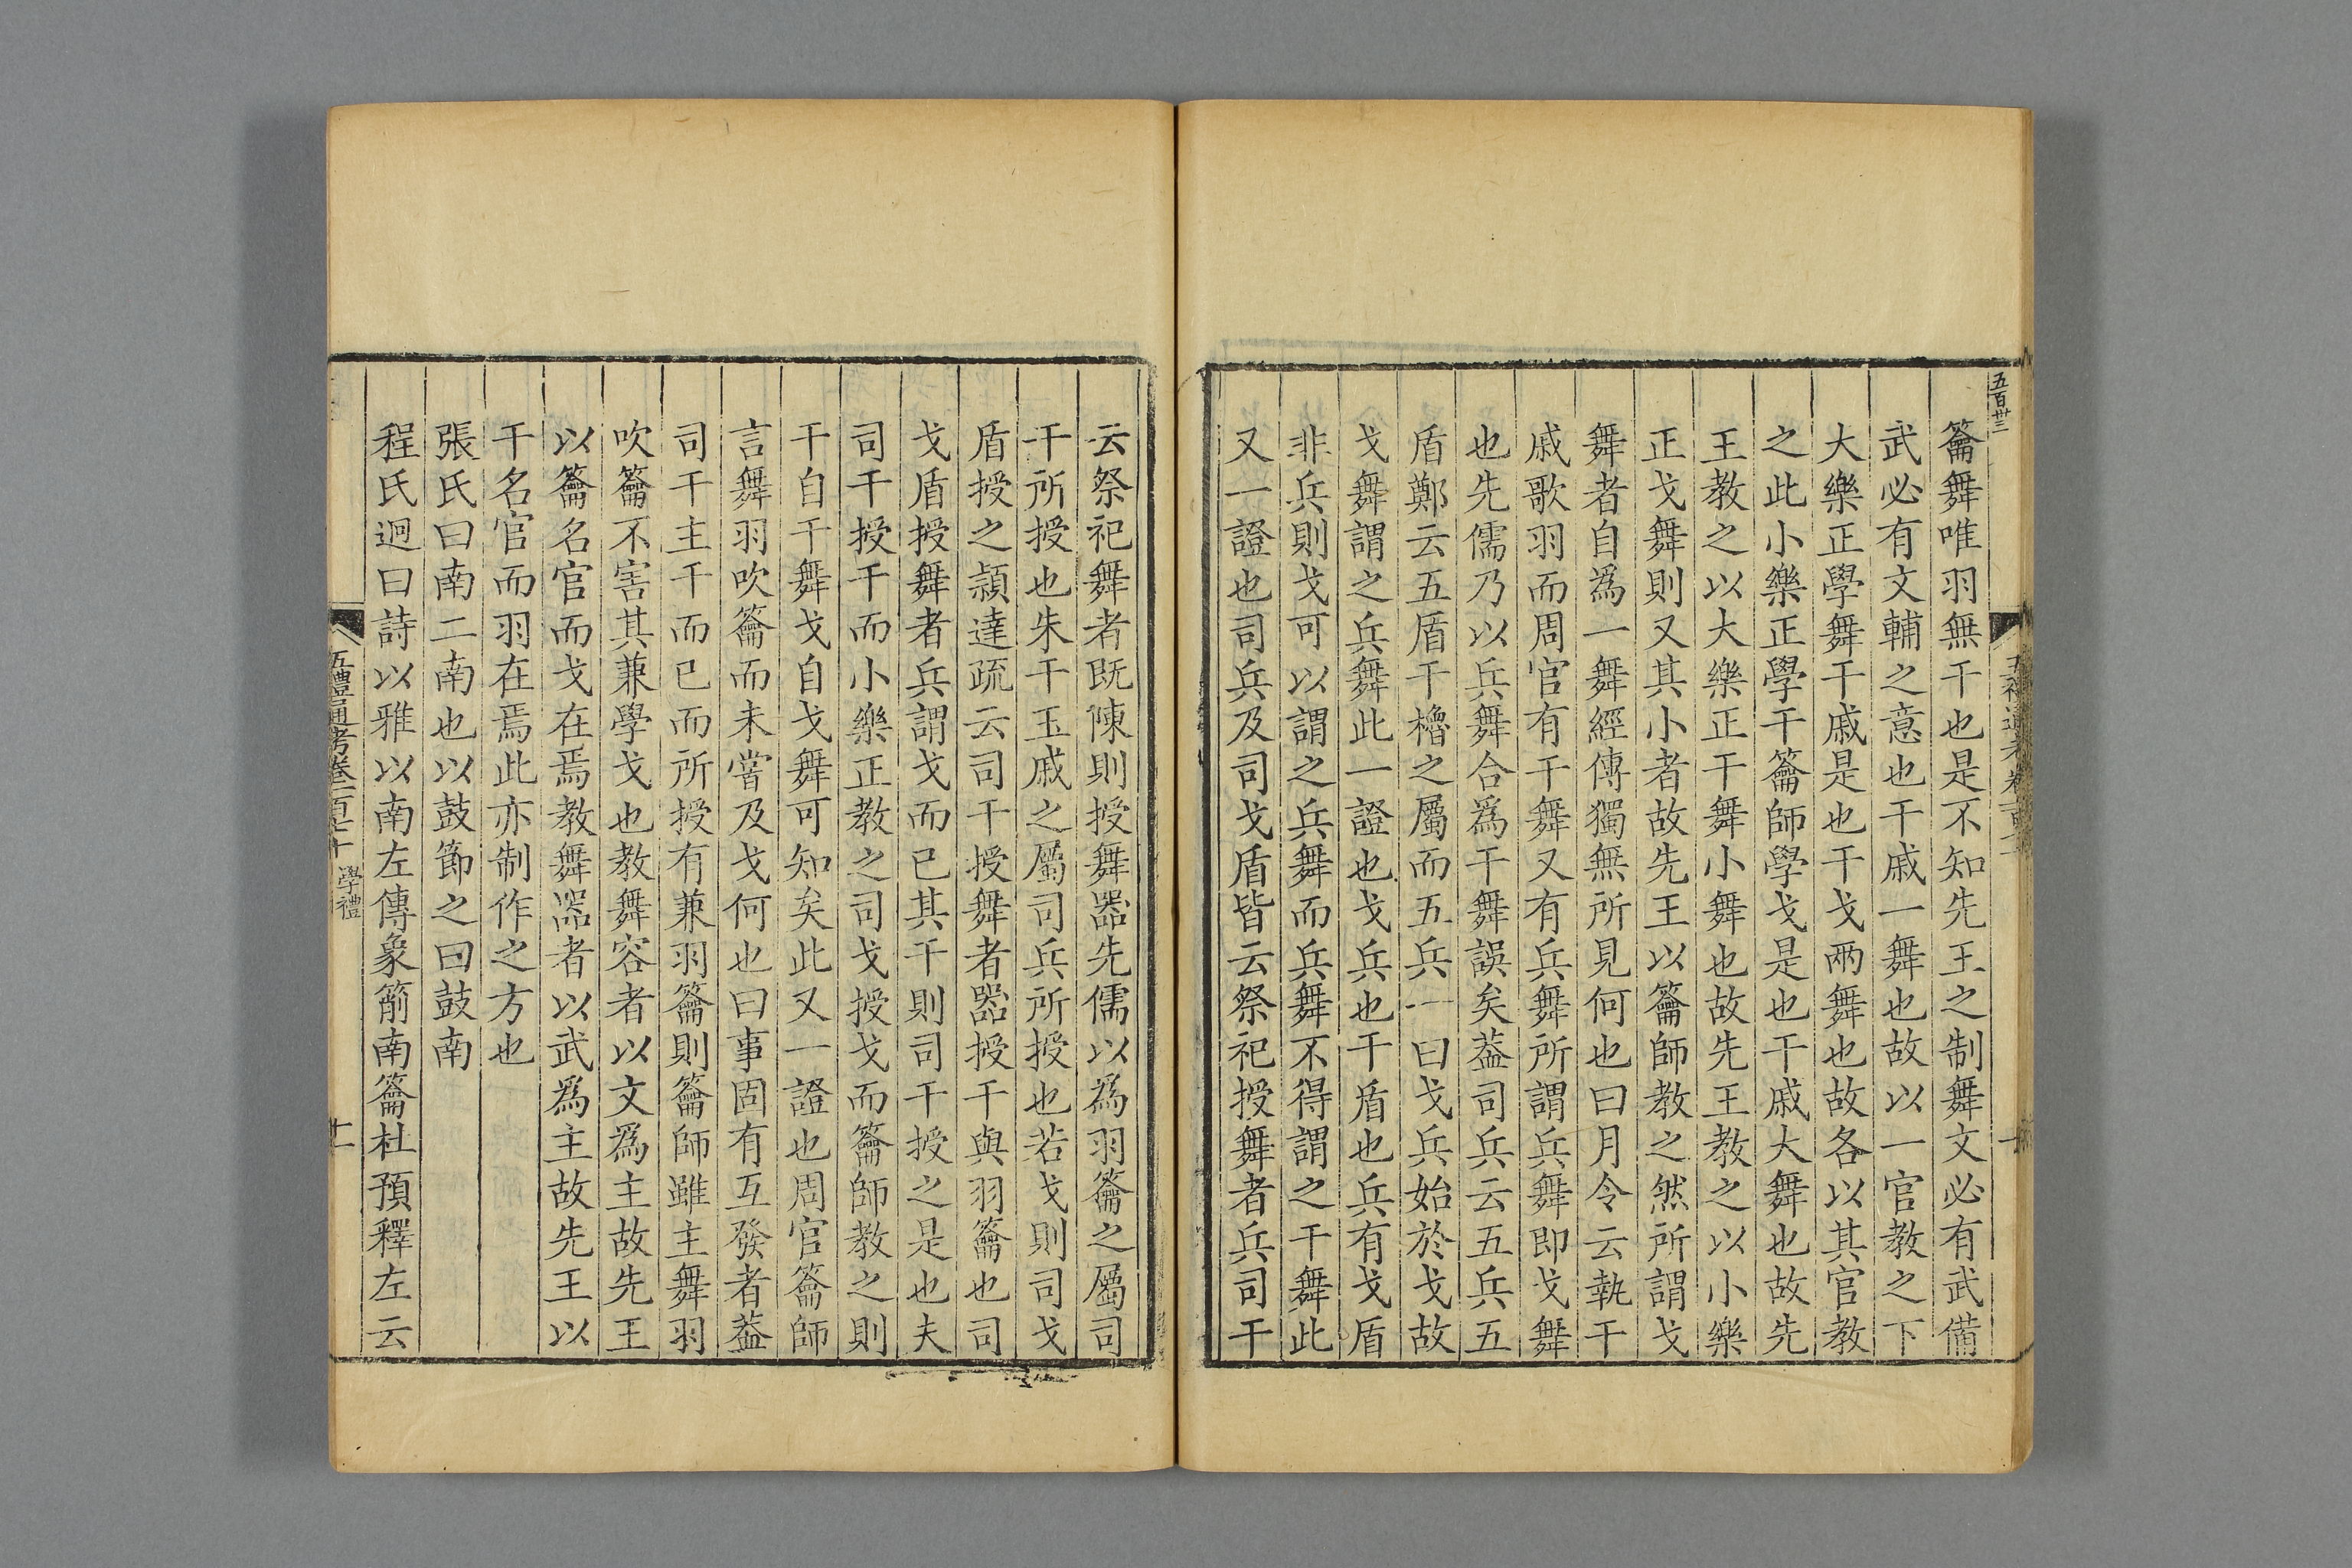 籥舞唯羽無干也是不知先王之制舞文必有武備
武必有文輔之意也干戚一舞也故以一官教之下
大樂正學舞干戚是也干戈兩舞也故各以其官教
之此小樂正學干籥師學戈是也干戚大舞也故先
王教之以大樂正干舞小舞也故先王教之以小樂
正戈舞則又其小者故先王以籥師教之然所謂戈
舞者自爲一舞經傳獨無所見何也曰月令云執干
戚歌羽而周官有干舞又有兵舞所謂兵舞即戈舞
也先儒乃以兵舞合爲干舞誤矣葢司兵云五兵五
盾鄭云五盾干櫓之屬而五兵一曰戈兵始於戈故
戈舞謂之兵舞此一證也戈兵也干盾也兵有戈盾
非兵則戈可以謂之兵舞而兵舞不得謂之干舞此
又一證也司兵及司戈盾皆云祭祀授舞者兵司干
云祭祀舞者既陳則授舞器先儒以爲羽籥之屬司
干所授也朱干玉戚之屬司兵所授也若戈則司戈
盾授之穎達疏云司干授舞者器授干與羽籥也司
戈盾授舞者兵謂戈而已其干則司干授之是也夫
司干授干而小樂正教之司戈授戈而籥師教之則
干自干舞戈自戈舞可知矣此又一證也周官籥師
言舞羽吹籥而未嘗及戈何也曰事固有互發者葢
司干主干而已而所授有兼羽籥則籥師雖主舞羽
吹籥不害其兼學戈也教舞容者以文爲主故先王
以籥名官而戈在焉教舞器者以武爲主故先王以
干名官而羽在焉此亦制作之方也
張氏曰南二南也以鼓節之曰鼓南
程氏迥曰詩以雅以南左傳象箾南籥杜預釋左云
五禮通考卷一百七十 學禮 十一